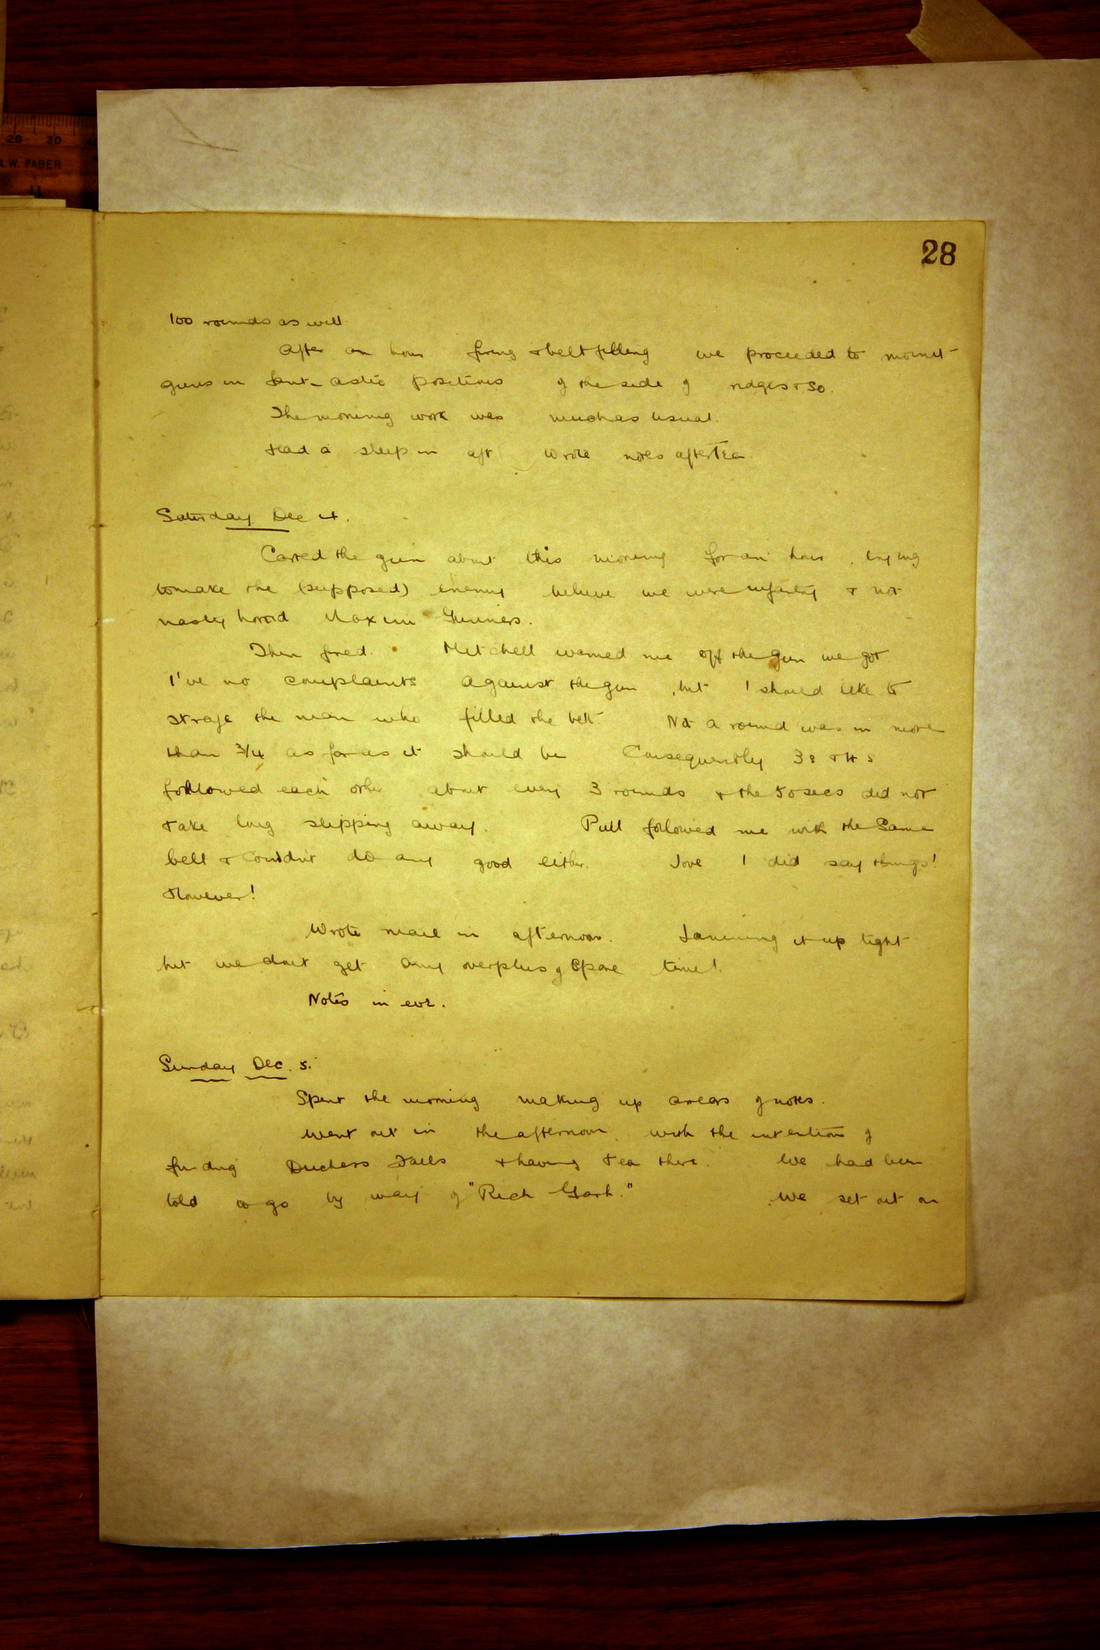 28
100 rounds as well
After an hour firing & belt filling we proceeded to mount
guns in fant-astic positions of the side of ridges & so.
The morning work was much as usual.
Had a sleep in aft. Wrote notes after Tea
Saturday Dec 4.
Carted the gun about this morning for an hour, trying
to make the (supposed) enemy believe we were infantry & not
nasty horrid Maxim Gunners.
Then fired. Mitchell warned me off the gun we got
I've no complaints against the gun, but I should like to
strafe the man who filled the belt. Not a round was in more
than 3/4 as far as it should be Consequently 3s & 4s
followed each other about every 3 rounds & the 50 secs did not
take long slipping away. Pull followed me with the same
belt & couldn't do any good either. Jove I did say things!
However!
Wrote mail in afternoon. Jamming it up tight
but we don't get any overplus of spare time!
Notes in eve.
Sunday Dec. 5.
Spent the morning making up arears of notes.
Went out in the afternoon with the intention of
finding Duchess Falls & having tea there. We had been
told to go by way of "Rich
We set out on
29 30
A.W. FABER
11